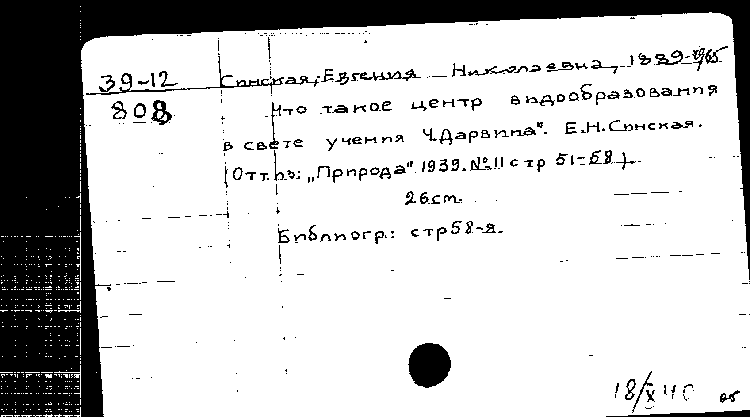 39-12 Синская, Евгения Николаевна, 1889-1965
808 Что такое центр видообразования
в свете учения Ч.Дарвина". Е.Н.Синская.
(Отт.из: „Природа" 1939. №11 стр 51-58).
26см.
Библиогр.: стр58-я.
18/X 40 об